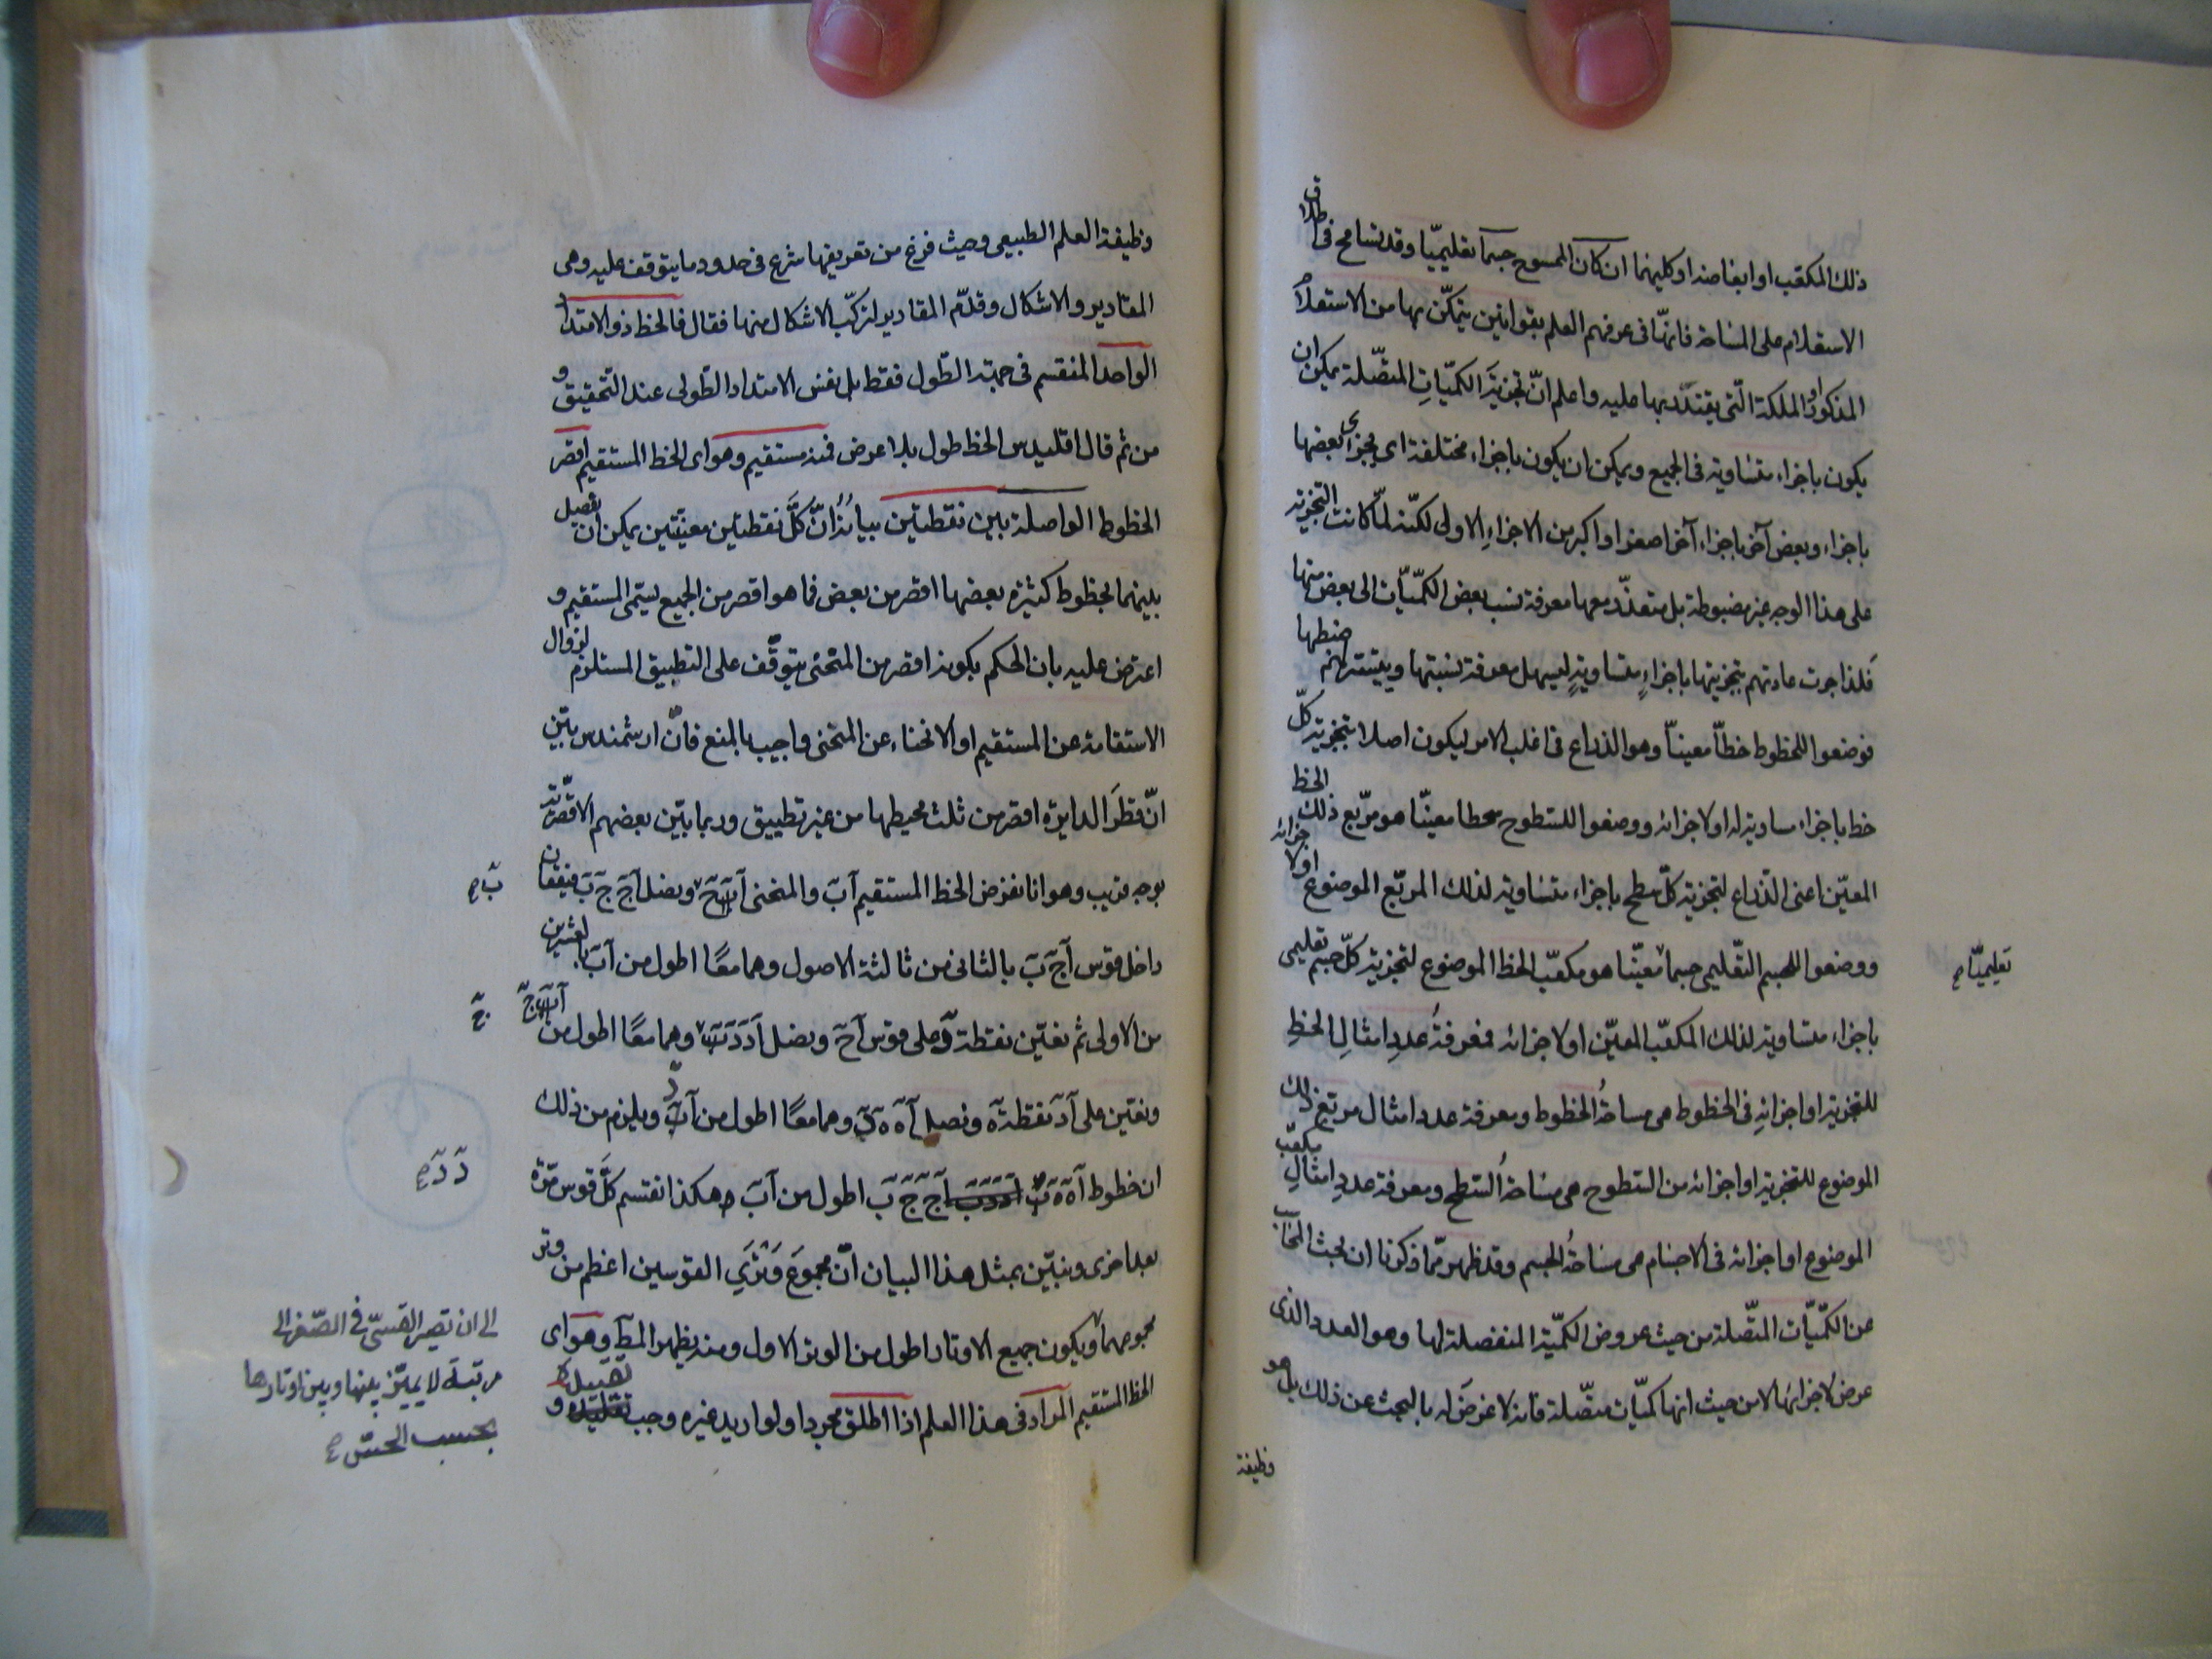 ذلك المكعب او ابعاضه او كليهما ان كان الممسوح جسما تعليميّا وقد تسامح فى اطلاق
الاستعلام على المساحة فانها فى عرفهم العلم بقوانين يتمكّن بها من الاستعلام
المذكور او الملكة التى يقتدر بها عليه واعلم انّ تجزيَة الكميّاتِ المتّصلة يمكن ان
يكون باجزاء متساوية فى الجميع ويمكن ان يكون باجزاء مختلفة اى يجزاى بعضها
باجزاء وبعض آخر باجزاء آخر اصغر او اكبر من الاجزاءِ الاولى لكنه لمّا كانت التجزية
على هذا الوجه غير مضبوطة بل متعذّر معها معرفة نسب بعض الكميّات الى بعض منها
فَلذا جرت عادتهم بتجزيتها باجزاءٍ متساويةٍ ليسهل معرفة نسبتها ويتيسّر لهم ضبطها
فوضعوا للخطوط خطاّ معيناّ وهو الذراع فى اغلب الامر ليكون اصلا بتجزية كلّ
خط باجزاء مساوية له او لاجزائه ووضعوا للسطوح سطحا معينّا هو مربّع ذلك الخط
المعيّن اعنى الذّراع لتجزية كلّ سطح باجزاء متساوية لذلك المربّع الموضوع او لاجزائه
ووضعوا للجسم التّعليمى جسما معينّا هو مكعّب الخط الموضوع لتجزية كلّ جسم تعليمى
تعليميّا صح
باجزاء متساوية لذلك المكعّب المعيّن او لاجزائه فمعرفةُ عددِ امثالِ الخطِ
للتجزية او اجزائهِ فى الخطوط هى مساحةُ الخطوط ومعرفة عدد امثال مربّع ذلك
الموضوع للتجزية او اجزائه من السّطوح هى مساحةُ السّطح ومعرفة عددِ امثالِ مكعّب
الموضوع او اجزائه فى الاجسام هى مساحةُ الجسم وقد ظهر ممّا ذكرنا ان بحث الحاسب
عن الكميّات المتّصلة من حيث عروض الكميّة المنفصلة لها وهو العدد الذى
عرض لاجزائها لا من حيث انها كميّات متصّلة فانه لا غرَض له بالبحث عن ذلك بل هو
وظيفة
وظيفة العلم الطبيعى وحيث فرغ من تعريفها شرع فى حدود ما يتوقف عليه وهى
المقادير والاشكال وقدّم المقادير لتركّب الاشكال منها فقال فالخط ذو الامتداد
الواحد المنقسم فى جهة الطّول فقط بل نفس الامتداد الطّولى عند التّحقيق و
من ثم قال اقليدس الخط طول بلا عرض فمنه مستقيم وهو اى الخط المستقيم اقصر
الخطوط الواصلة بين نقطتين بيانُهُ انّ كلَّ نقطتين معينّتين يمكن ان يفصيل
بينهما بخطوط كثيرة بعضها اقصر من بعض فما هو اقصر من الجميع يسمّى المستقيم و
اعترض عليه بان الحكم بكونه اقصر من المنحنى يتوقّف على التطبيق المستلزم لزوال
الاستقامة عن المستقيم او الانحناء عن المنحنى واجيب بالمنع فانّ ارشمندس بيّن
انّ قطرَ الدايرة اقصر من ثلث محيطها من غير تطبيق وربما بيّن بعضهم الاقصريّة
بوجه قريب وهو انا نفرض الخط المستقيم آب والمنحنى آب ج ونصل آج ج ب فيقعان
ب صح
داخل قوس آج ب بالثانى من ثالثة الاصول وهما معًا اطول من آب بالعشرين
من الاولى ثم نعيّن نقطة د على قوس آج ونصل آد د ب وهما معًا اطول من آب
ج
ونعيّن على آد نقطة ه ونصل آه ه ب وهما معًا اطول من آب ويلزم من ذلك
ان خطوط آه ه ب آج ج ب اطول من آب وهكذا نقسم كلَّ قوس مرّة
د د صح
بعد اخرى ونبيّن بمثل هذا البيان انّ مجموعَ وَتَرَيِ القوسين اعظم من وتر
مجموعهما ويكون جميع الاوتار اطول من الوتر الاول ومنه يظهر المط وهو اى
الى ان تصير القسىّ فى الصّغر الى
مرتبة لا يميّز بينها وبين اوتارها
بحسب الحسّ صح
الخط المستقيم المراد فى هذا العلم اذا اطلق مجردا ولو اريد غيره وجب تقييده و